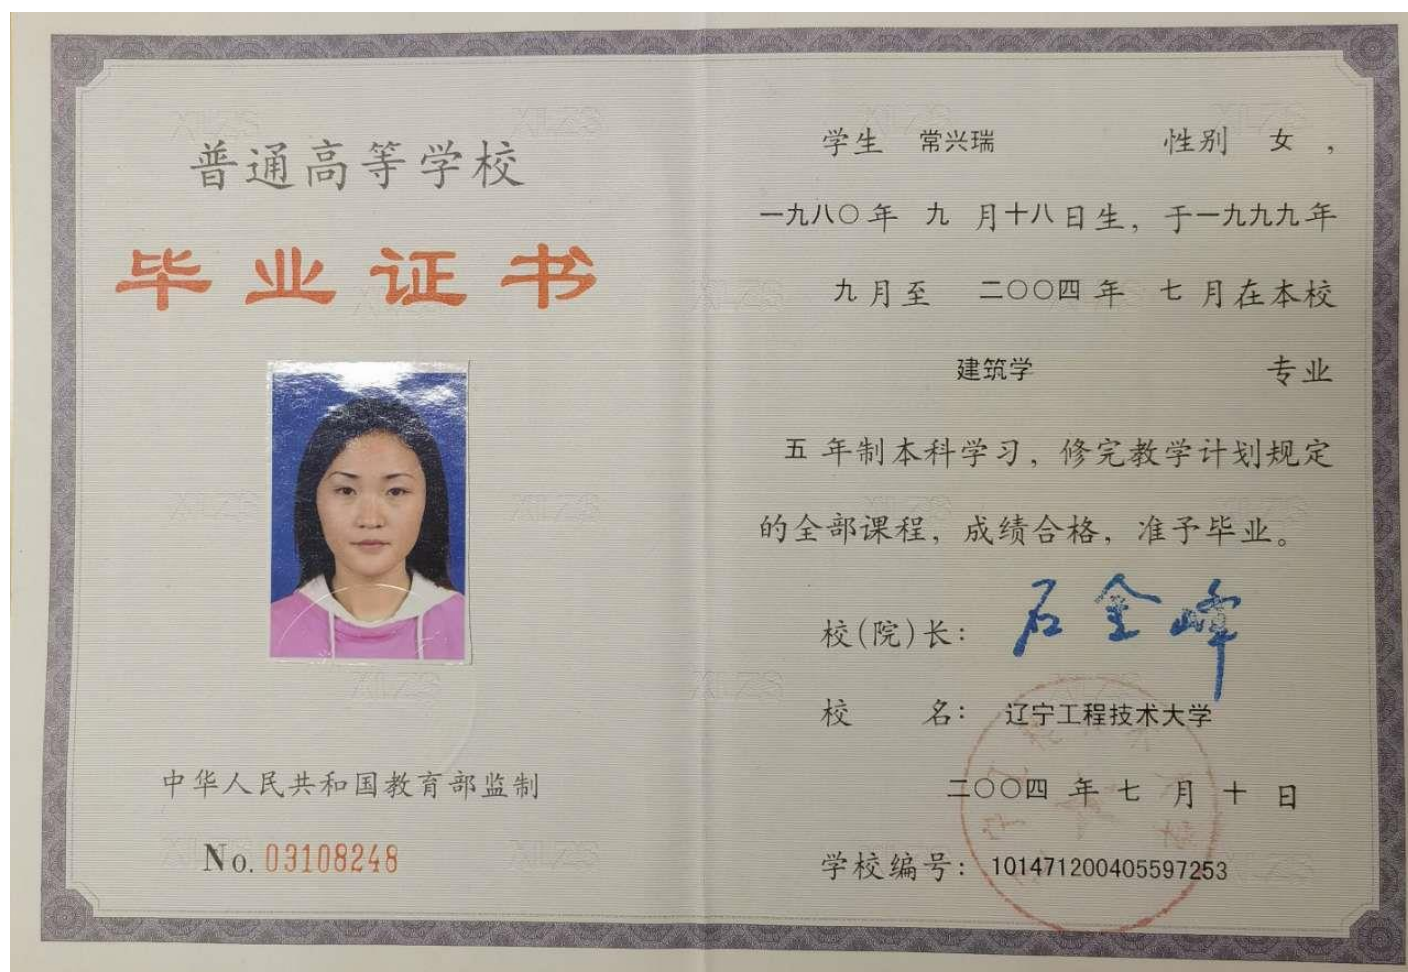 普通高等学校
毕业证书
中华人民共和国教育部监制
No. 03108248
学生 常兴瑞 性别 女 ,
一九八〇年 九 月十八日生, 于一九九九年
九月至 二〇〇四 年 七 月在本校
建筑学 专业
五 年制本科学习, 修完教学计划规定
的全部课程, 成绩合格, 准予毕业。
校(院)长: 石金峰
校 名: 辽宁工程技术大学
二〇〇四 年 七 月 十 日
学校编号: 101471200405597253
XLZS